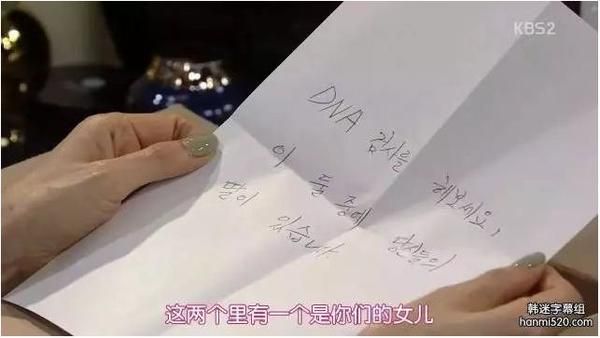 KBS2
DNA 검사를 해보세요,
이 둘 중에 당신들의
딸이 있습니다
这两个里有一个是你们的女儿
韩迷字幕组
hanmi520.com